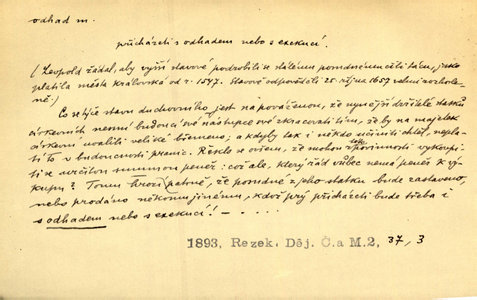 odhad m.
přicházeti s odhadem nebo s exekucí.
(Leopold žádal, aby vyšší stavové podrobili se stálému poondnímu čili tácu, jako
platila města královská od r. 1547. Stavové odpověděli 25. října 1657 velmi rozhole-
ně.)
Co se týče stavu duchovního, jest na pováženou, že nynější držitelé statků
církevních nemní budoucí své nástupce své zkracovati tím, že by na majetek
církevní uvalili veliké břemeno; a kdyby tak i někdo učiniti chtěl, nepla-
tí to v budoucnosti pranic. Řeklo se ovšem, že mohou z povinnosti vykoupi-
ti se určitou summou peněz: což ale, který řád vůbec nemá peněz k vý-
kupu? Tomu hrozí patrně, že poondné z jeho statku bude zastaveno,
nebo prodáno někomu jinému, když prý přicházeti bude třeba i
s odhadem nebo s exekucí! – . . . . .
1893, Rezek. Děj. Č. a M. 2, 37, 3